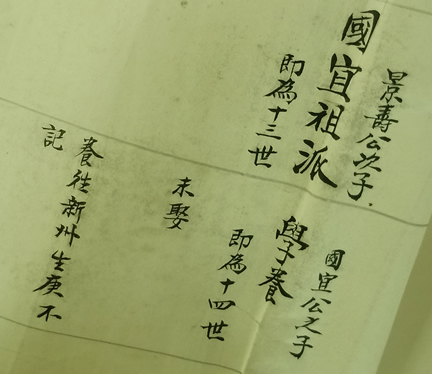 景壽公次子.
國宜祖派
即為十三世
國宜公之子
學養
即為十四世
未娶
養往新州生庚不
記